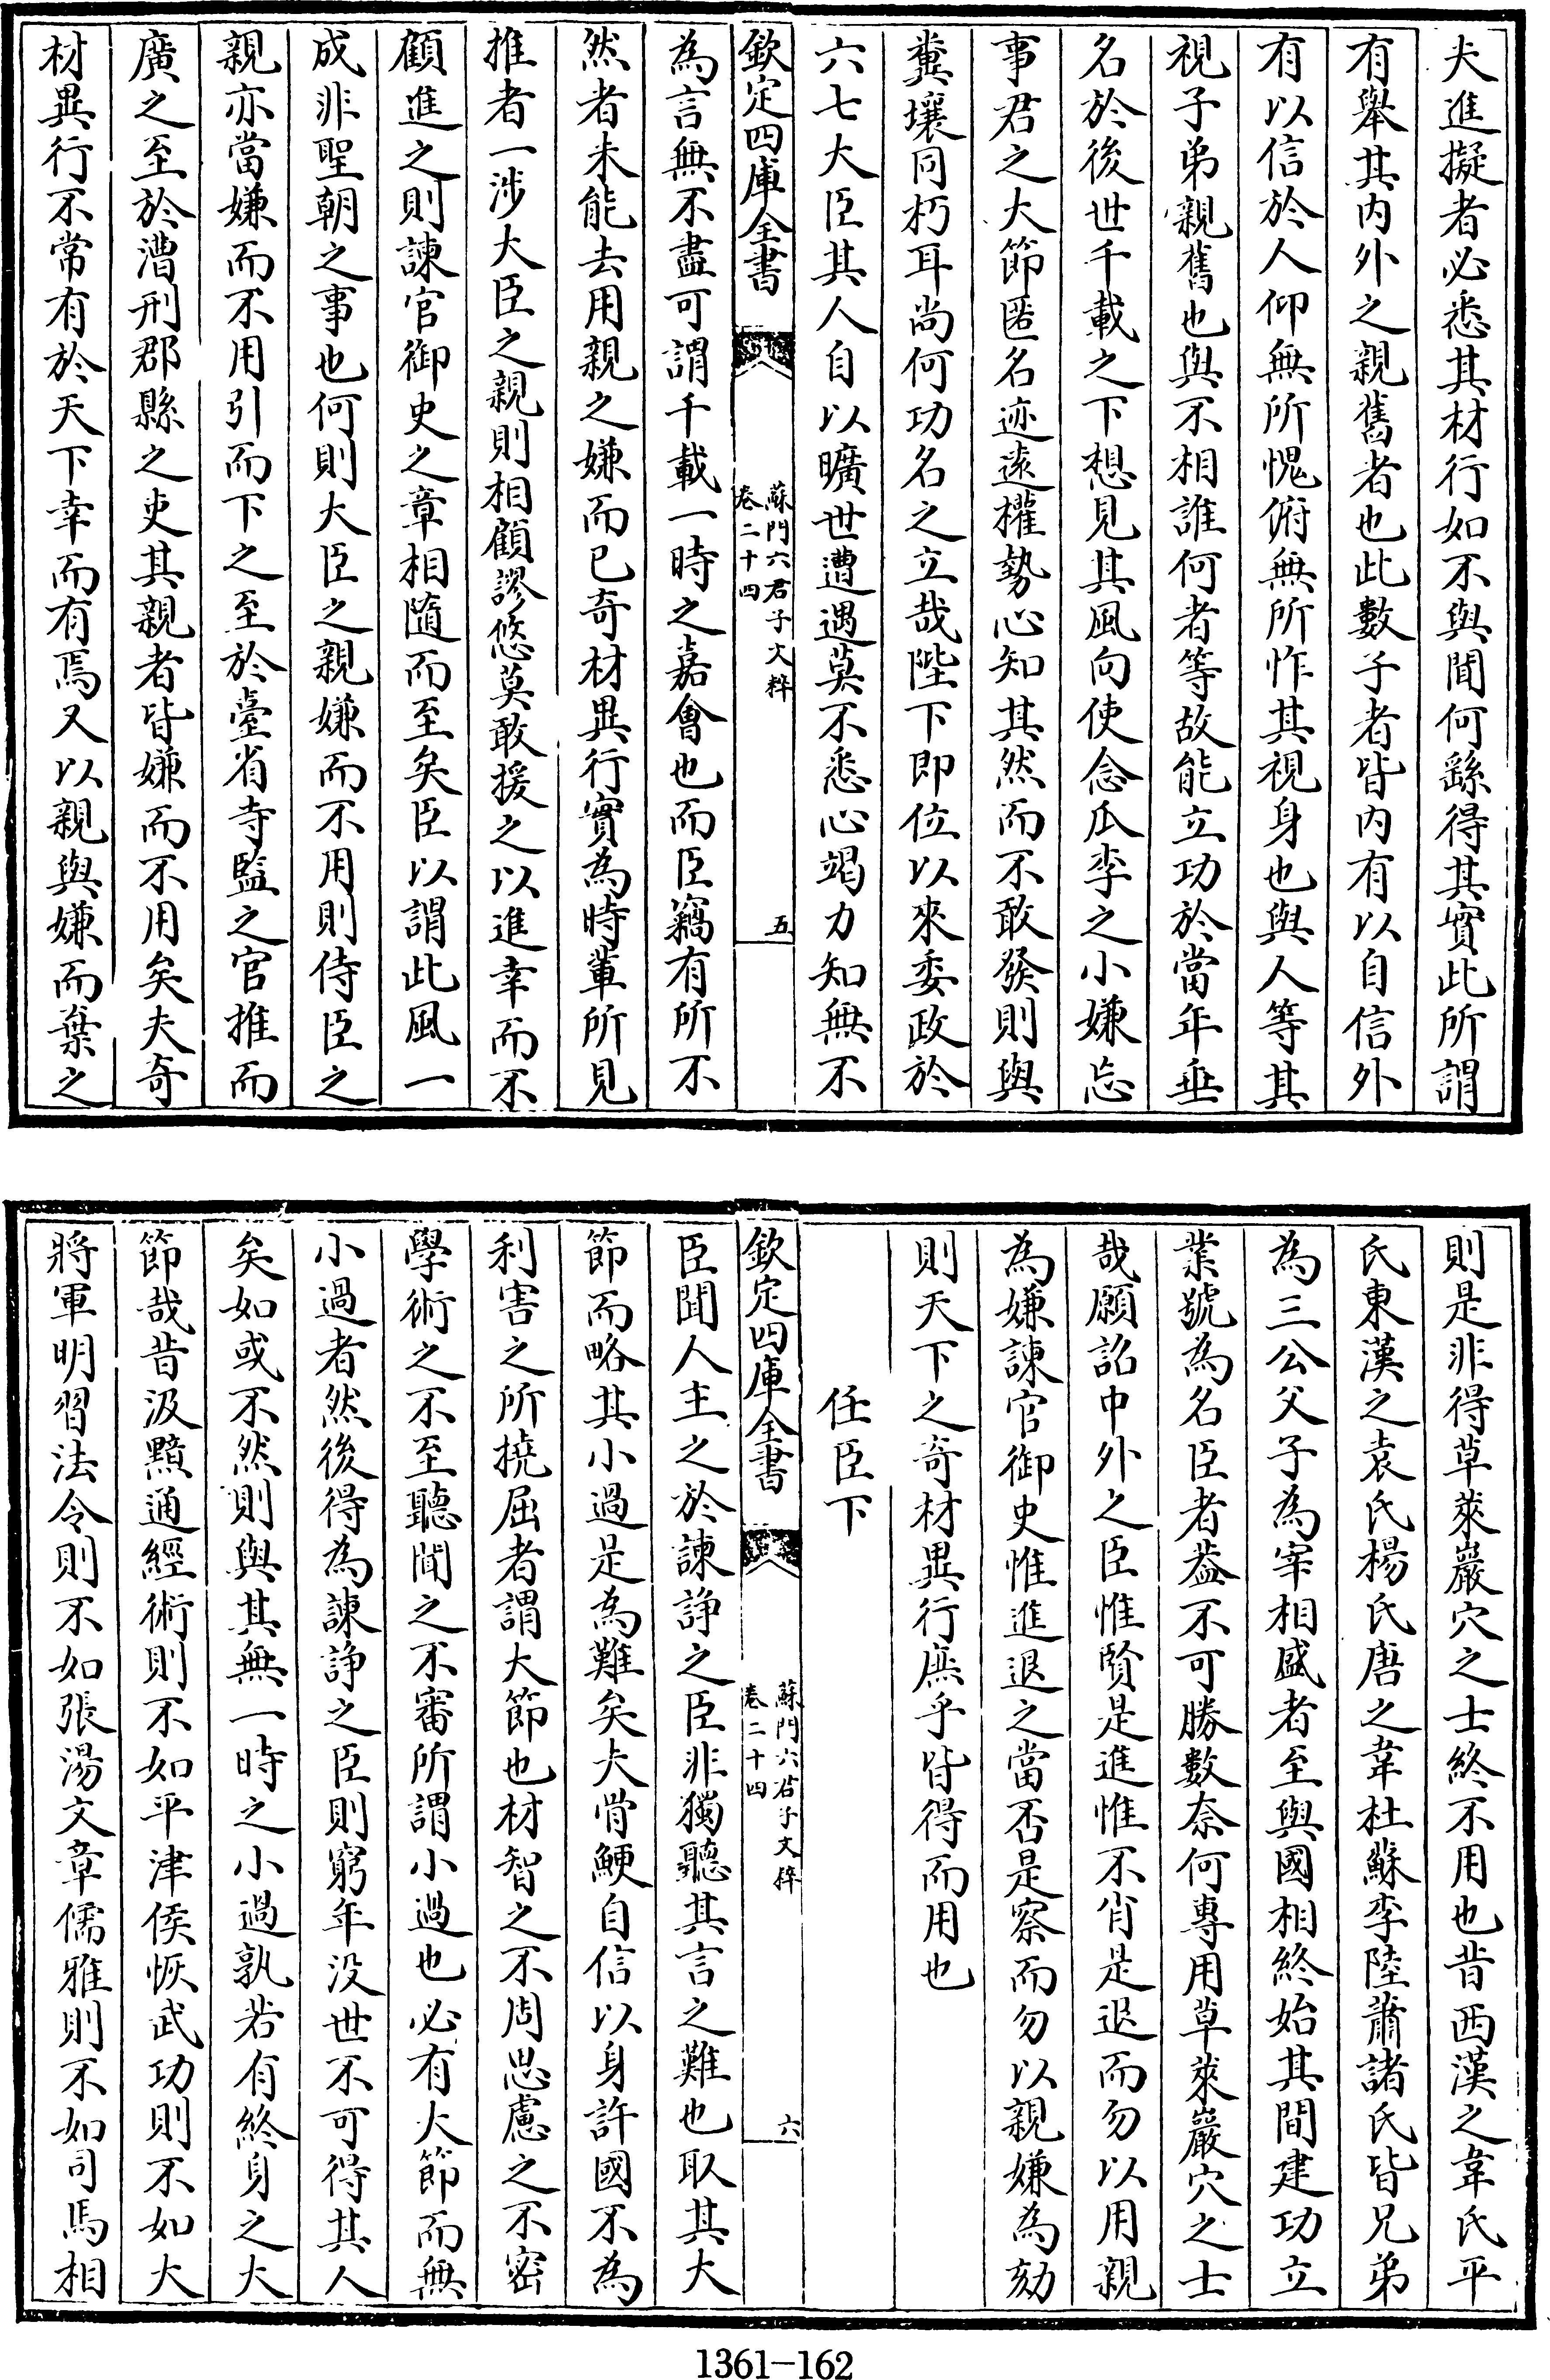 夫進擬者必悉其材行如不與聞何繇得其實此所謂
有舉其内外之親舊者也此數子者皆内有以自信外
有以信於人仰無所愧俯無所怍其視身也與人等其
視子弟親舊也與不相誰何者等故能立功於當年垂
名於後世千載之下想見其風向使念瓜李之小嫌忘
事君之大節匿名迹逺權勢心知其然而不敢發則與
糞壤同朽耳尚何功名之立哉陛下即位以來委政於
六七大臣其人自以曠世遭遇莫不悉心竭力知無不
欽定四庫全書
蘇門六君子文粹
卷二十四
五
為言無不盡可謂千載一時之嘉會也而臣竊有所不
然者未能去用親之嫌而已奇材異行實為時輩所見
推者一涉大臣之親則相顧謬悠莫敢援之以進幸而不
顧進之則諫官御史之章相隨而至矣臣以謂此風一
成非聖朝之事也何則大臣之親嫌而不用則侍臣之
親亦當嫌而不用引而下之至於臺省寺監之官推而
廣之至於漕刑郡縣之吏其親者皆嫌而不用矣夫奇
材異行不常有於天下幸而有焉又以親與嫌而棄之
則是非得草萊巖穴之士終不用也昔西漢之韋氏平
氏東漢之袁氏楊氏唐之韋杜蘇李陸蕭諸氏皆兄弟
為三公父子為宰相盛者至與國相終始其間建功立
業號為名臣者葢不可勝數奈何專用草萊巖穴之士
哉願詔中外之臣惟賢是進惟不肖是退而勿以用親
為嫌諫官御史惟進退之當否是察而勿以親嫌為劾
則天下之奇材異行庶乎皆得而用也
任臣下
欽定四庫全書
蘇門六君子文粹
卷二十四
六
臣聞人主之於諫諍之臣非獨聽其言之難也取其大
節而略其小過是為難矣夫骨鯁自信以身許國不為
利害之所撓屈者謂大節也材智之不周思慮之不密
學術之不至聽聞之不審所謂小過也必有大節而無
小過者然後得為諫諍之臣則窮年没世不可得其人
矣如或不然則與其無一時之小過孰若有終身之大
節哉昔汲黯通經術則不如平津侯恢武功則不如大
將軍明習法令則不如張湯文章儒雅則不如司馬相
1361-162